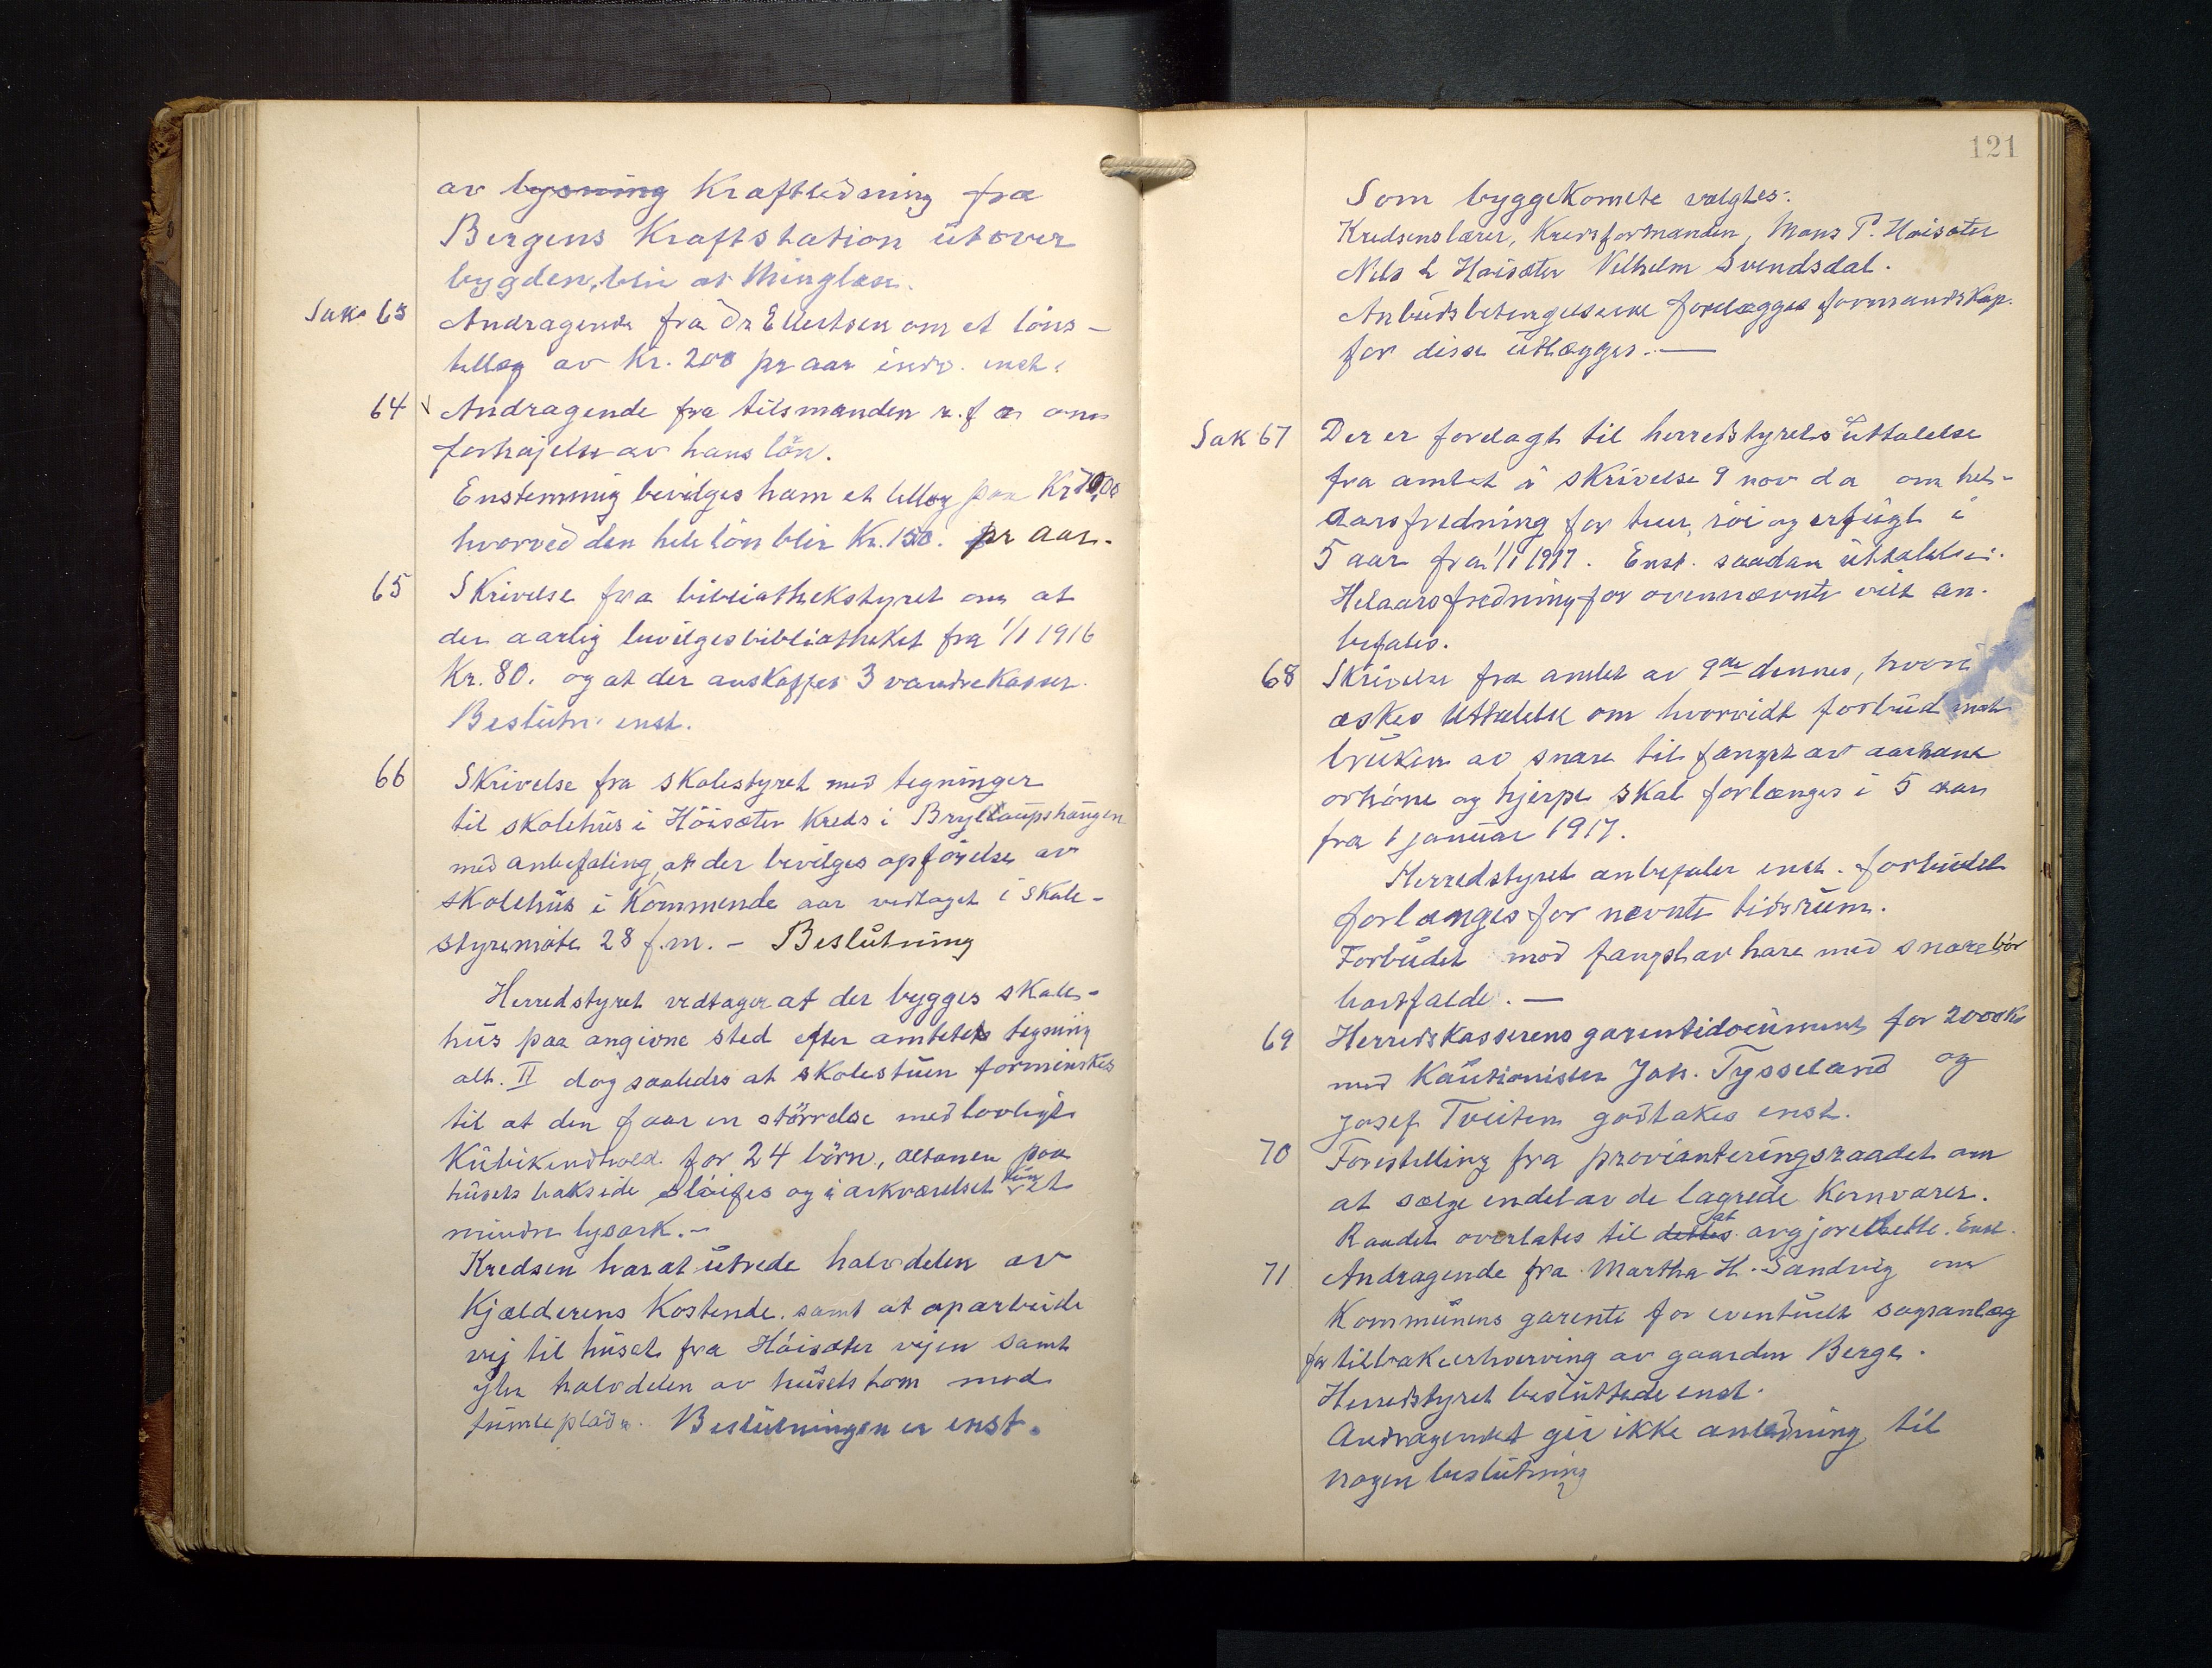 av lysning Kraftledning fra
Bergens Kraftstation utover
bygden, blir at
Sak 63 Andragende fra Dr Ellertsen om et löns-
tillæg av Kr. 200 pr aar indv. enst.
64 Andragende fra tilsmanden n. f. a om
forhøjelse av hans lön.
Enstemmig bevilges ham et tillæg paa Kr 70,00
hvorved den hele lön blir Kr. 150. pr aar.
65 Skrivelse fra bibliothekstyret om at
der aarlig bevilges bibliotheket fra 1/1 1916
Kr. 80. og at der anskaffes 3 vandrekasser.
Beslutn. enst.
66 Skrivelse fra skolestyret med tegninger
til skolehus i Höisæter Kreds i Bryllaupshaugen
med anbefaling, at der bevilges opförelse av
skolehus i Kommende aar vedtaget i skole-
styremöte 28 f.m. - Beslutning
Herredstyret vedtager at der bygges skole-
hus paa angivne sted efter amtets tegning
alt. II dog saaledes at skolestuen forminskes
til at den faar en störrelse med lovlige
Kubikindhold for 24 börn, altanen paa
husets bakside slöifes og i arkværelset kun et
mindre lysark.-
Kredsen har at utrede halvdelen av
Kjælderens Kostende. samt at oparbeide
vej til huset fra Höisæter vejen samt
yder halvdelen av husets tom med
tumleplads. Beslutningen er enst.
121
Som byggekomite valgtes:
Kredsens lærer, Kredsformanden, Mons P. Høisæter
Nils L Høisæter Vilhelm Svendsdal.
Anbudsbetingelserne forelægges formandskap.
før disse utlægges.-
Sak 67 Der er forelagt til herredstyrets uttalelse
fra amtet i skrivelse 9 nov d a om hel-
aarsfredning for tiur, röi og orfugl i
5 aar fra 1/1 1917. Enst. saadan uttalelse:
Helaarsfredning for ovennævnte vilt an-
befales.
68 Skrivelse fra amtet av 9de dennes, hvori
æskes uttalelse om hvorvidt forbud mot
bruken av snare til fangst av aarhane
orhöne og hjerpe skal forlænges i 5 aar
fra 1 januar 1917.
Herredstyret anbefaler enst. forbudet
forlænges for nævnte tidsrum.
Forbudet mod fangst av hare med snare bör
bortfalde.-
69 Herredskasserens garentidocument for 2000 Kr
med Kautionister Joh. Tysseland og
Josef Tveiten godtakes enst.
70 Forestilling fra provianteringsraadet om
at sælge endel av de lagrede Kornvarer.
Raadet overlates til dettes at avgjøre dette. Enst.
71 Andragende fra Martha H. Sandvig om
Kommunens garenti for eventuelt sagsanlæg
for tilbakeerhverving av gaarden Berge.
Herredstyret besluttede enst.
Andragendet gir ikke anledning til
nogen beslutning